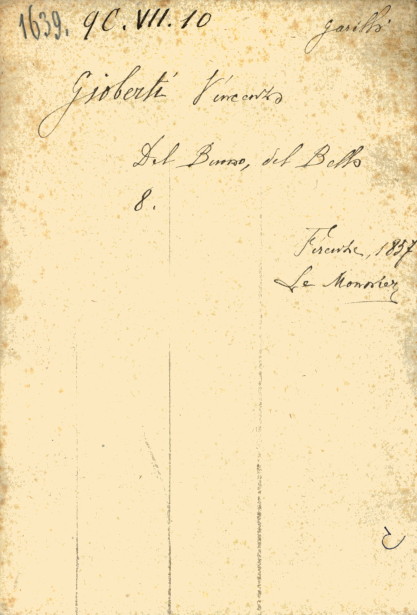 1639. 9C. VII. 10
Gioberti Vincenzo
Del Buono, del Bello
8.
Firenze, 1857
Le Monnier